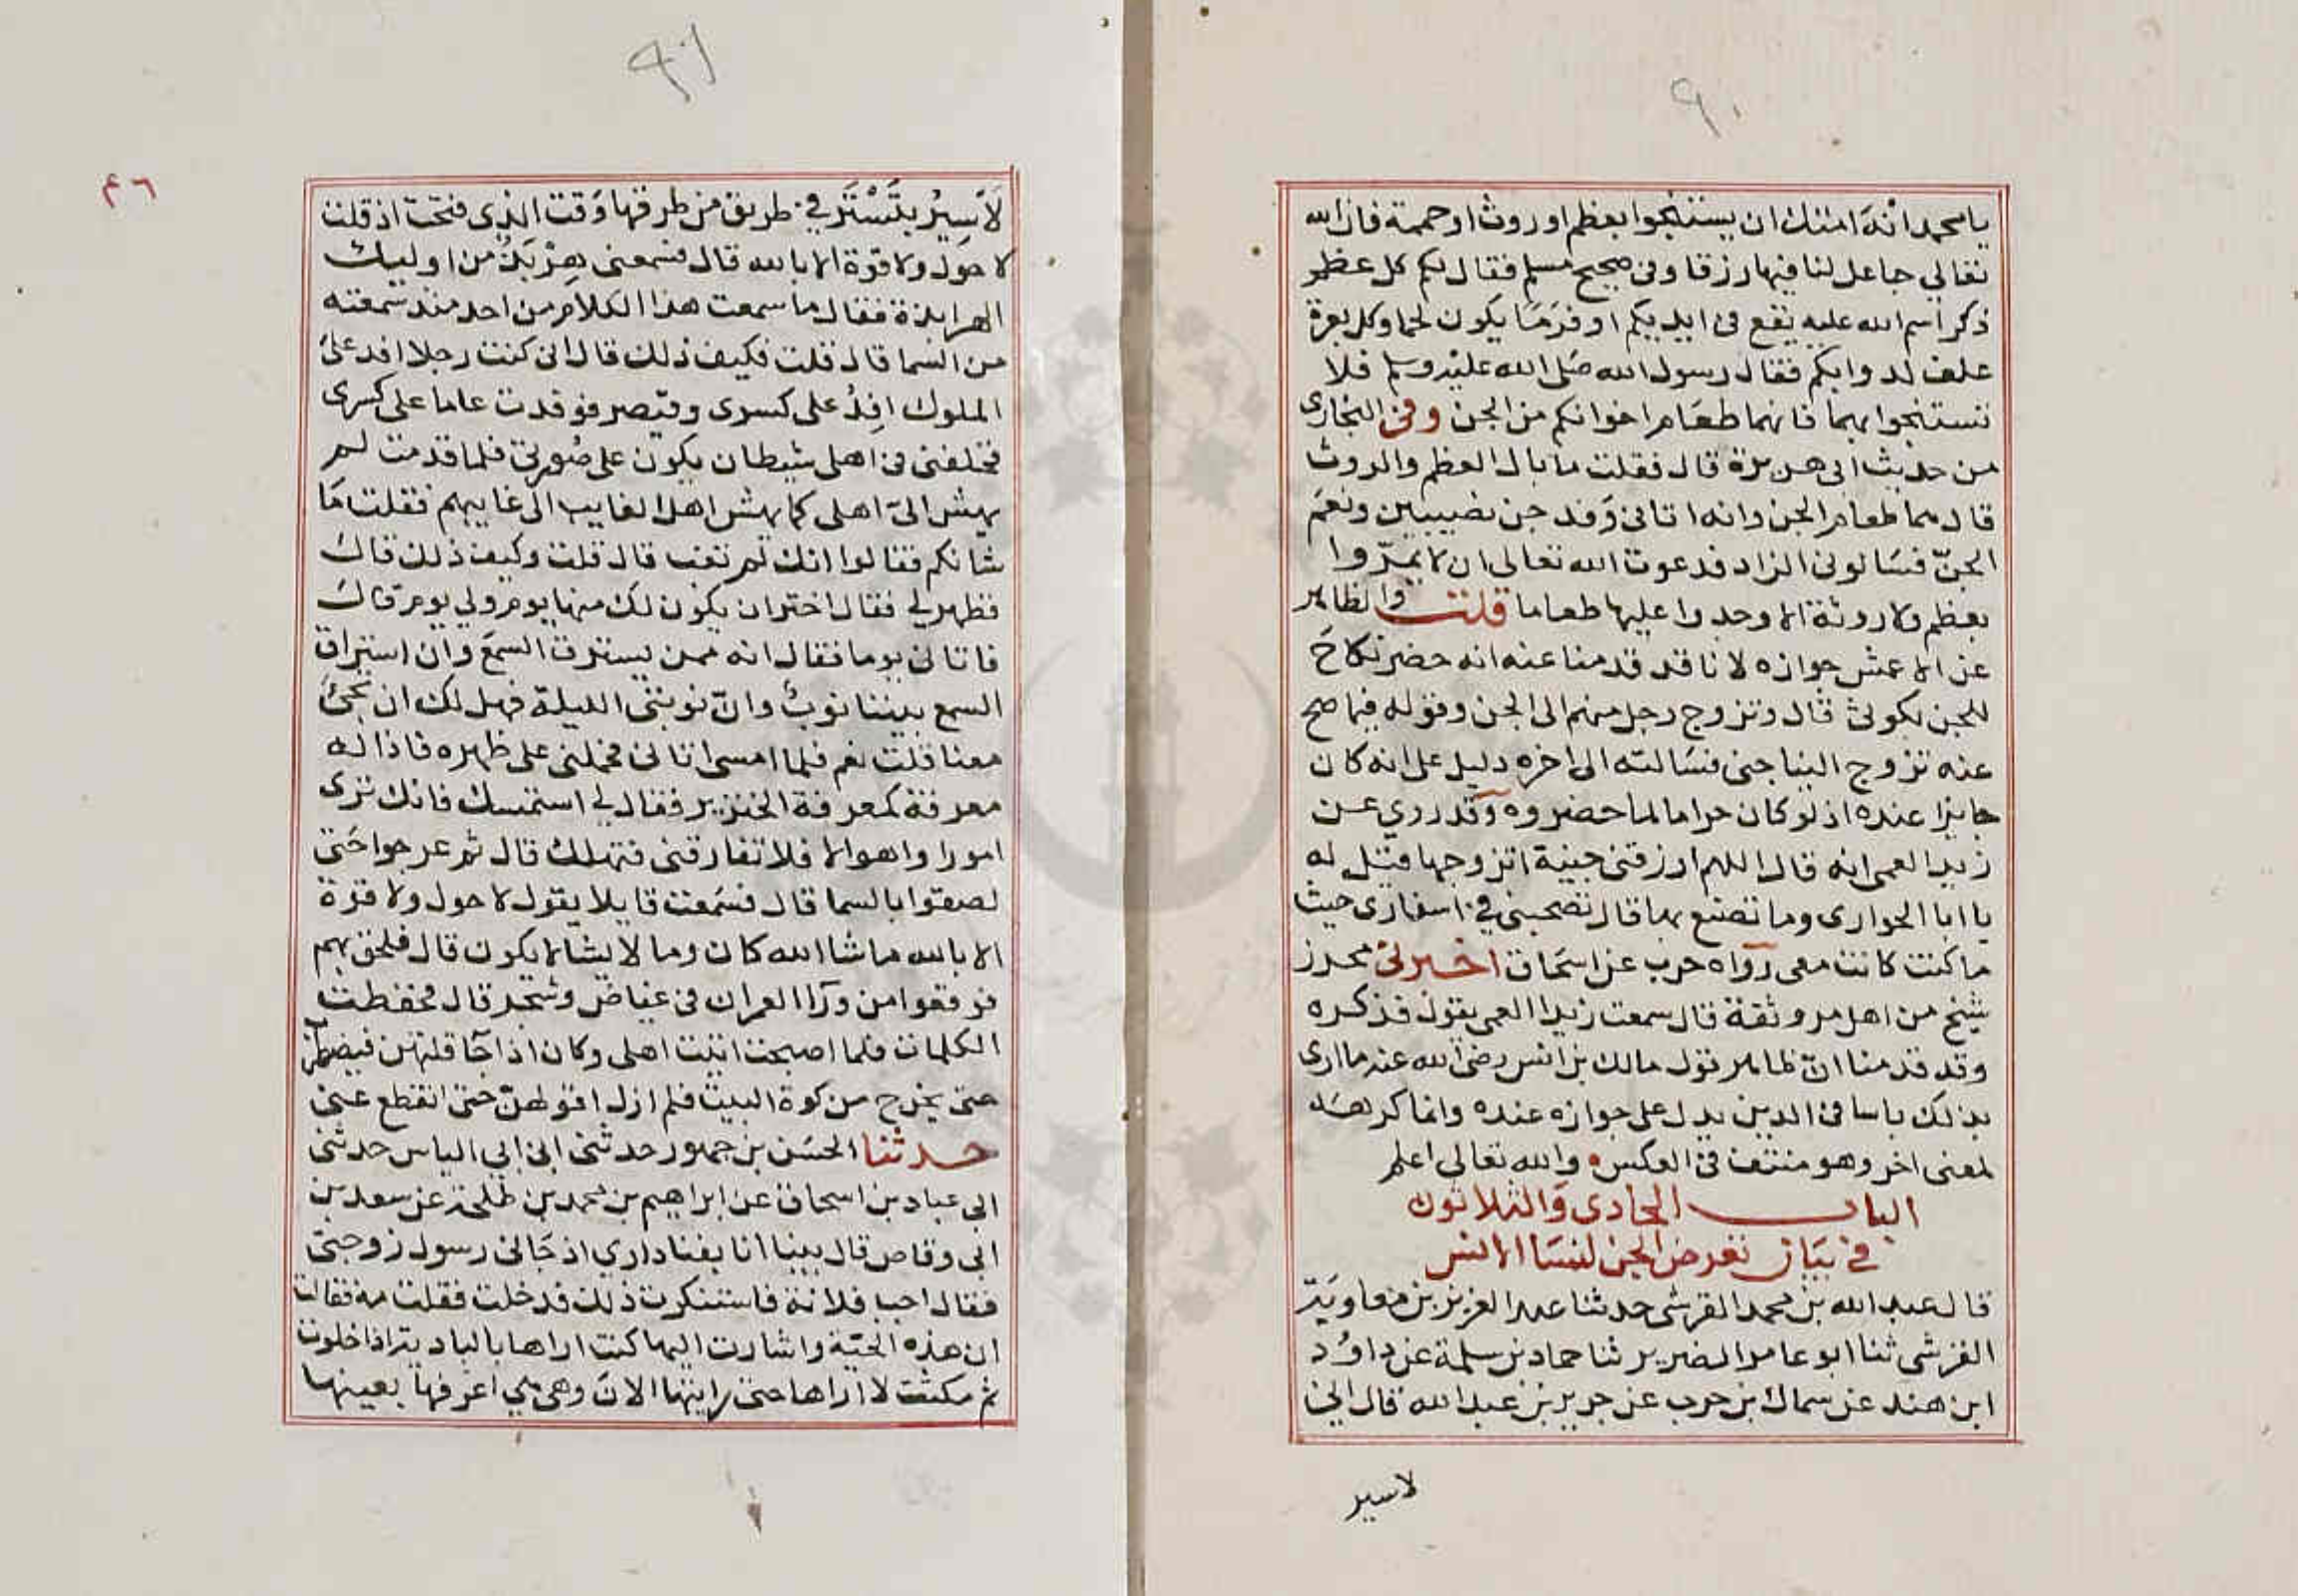 ٩٠
يا محمد انه امتك ان يستنجوا بعظم او روث او حممة فان الله
تعالي جاعل لنا فيها رزقا وفي صحيح مسلم فقال لكم كل عظم
ذكر اسم الله عليه يقع في ايديكم اوفر ما يكون لحما وكل بعرة
علف لدوابكم فقال رسول الله صلى الله عليه وسلم فلا
تستنجوا بهما فانهما طعام اخوانكم من الجن وفي البخاري
من حديث ابي هريرة قال فقلت ما بال العظم والروث
قال هما طعام الجن وانه اتاني وفد جن نصيبين ونعم
الجنّ فسالوني الزاد فدعوت الله تعالى ان لا يمرّوا
بعظم ولا روثة الا وجدوا عليها طعاما قلت والظاهر
عن الاعمش جوازه لانا قد قدمنا عنه انه حضر نكاحَ
للجن بكوثى قال وتزوج رجل منهم الى الجن وقوله فيما صح
عنه تزوج الينا جني فسالته الى اخره دليل على انه كان
جايزا عنده اذ لو كان حراما لما حضروه وقد روي عن
زيد العمى انه قال اللهم ارزقني جنية اتزوجها فقيل له
يا ابا الحوارى وما تصنع بها قال تصحبني في اسفارى حيث
ما كنت كانت معي رواه حرب عن اسحاق اخبرني محرز
شيخ من اهل مرو ثقة قال سمعت زيدا العمى يقول فذكره
وقد قدمنا انّ ظاهر قول مالك بن انس رضي الله عنه ما ارى
بذلك باسا في الدين يدل على جوازه عنده وانما كرهه
لمعنى اخر وهو منتف في العكس والله تعالى اعلم
الباب الحادى والثلاثون
في بيان تعرض الجن لنسا الانس
قال عبد الله بن محمد القرشى حدثنا عبد العزيز بن معاوية
القرشى ثنا ابو عامر الضرير ثنا حماد بن سلمة عن داود
ابن هند عن سماك بن حرب عن جرير بن عبد الله قال اني
لاسير
٩١
٤٦
لأسير بتستر في طريق من طرقها وقت الذي فتحت اذ قلت
لا حول ولا قوة الا بالله قال فسمعني هِرْبَذٌ من اوليك
الهرابذة فقال ما سمعت هذا الكلام من احد منذ سمعته
من السما قال قلت فكيف ذلك قال اني كنت رجلا افد على
الملوك افِدُ على كسرى وقيصر فوفدت عاما على كسرى
فخلفني في اهلى شيطان يكون على صورتي فلما قدمت لم
يهش اليّ اهلى كما يهش اهل الغايب الى غايبهم فقلت ما
شانكم فقالوا انك لم تغب قال قلت وكيف ذلك قال
فظهر لي فقال اختر ان يكون لك منها يوم ولي يوم قال
فاتانى يوما فقال انه ممن يسترق السمع وان استراق
السمع بيننا نوبٌ وانّ نوبتى الليلة فهل لك ان تجئ
معنا قلت نعم فلما امسى اتانى فحملني على ظهره فاذا له
معرفة كمعرفة الخنزير فقال لي استمسك فانك ترى
امورا واهوالا فلا تفارقني فتهلك قال ثم عرجوا حتى
لصقوا بالسما قال فسمعت قايلا يقول لا حول ولا قوة
الا بالله ما شا الله كان وما لا يشا لا يكون قال فلحق بهم
فوقعوا من ورآا العمران في غياض وشجر قال فحفظت
الكلمات فلما اصبحت اتيت اهلى وكان اذا جآ قلتهن فيضطرب
حتى يخرج من كوة البيت فلم ازل اقولهنّ حتى انقطع عني
حدثنا الحسن بن جمهور حدثني ابن ابي الياس حدثني
ابي عباد بن اسحاق عن ابراهيم بن محمد بن طلحة عن سعد بن
ابي وقاص قال بينا انا بفنا داري اذ جانى رسول زوجتى
فقال اجب فلانة فاستنكرت ذلك فدخلت فقلت مه فقالت
ان هذه الحيّة واشارت اليها كنت اراها بالبادية اذا خلوت
ثم مكثت لا اراها حتى رايتها الان وهي هي اعرفها بعينها